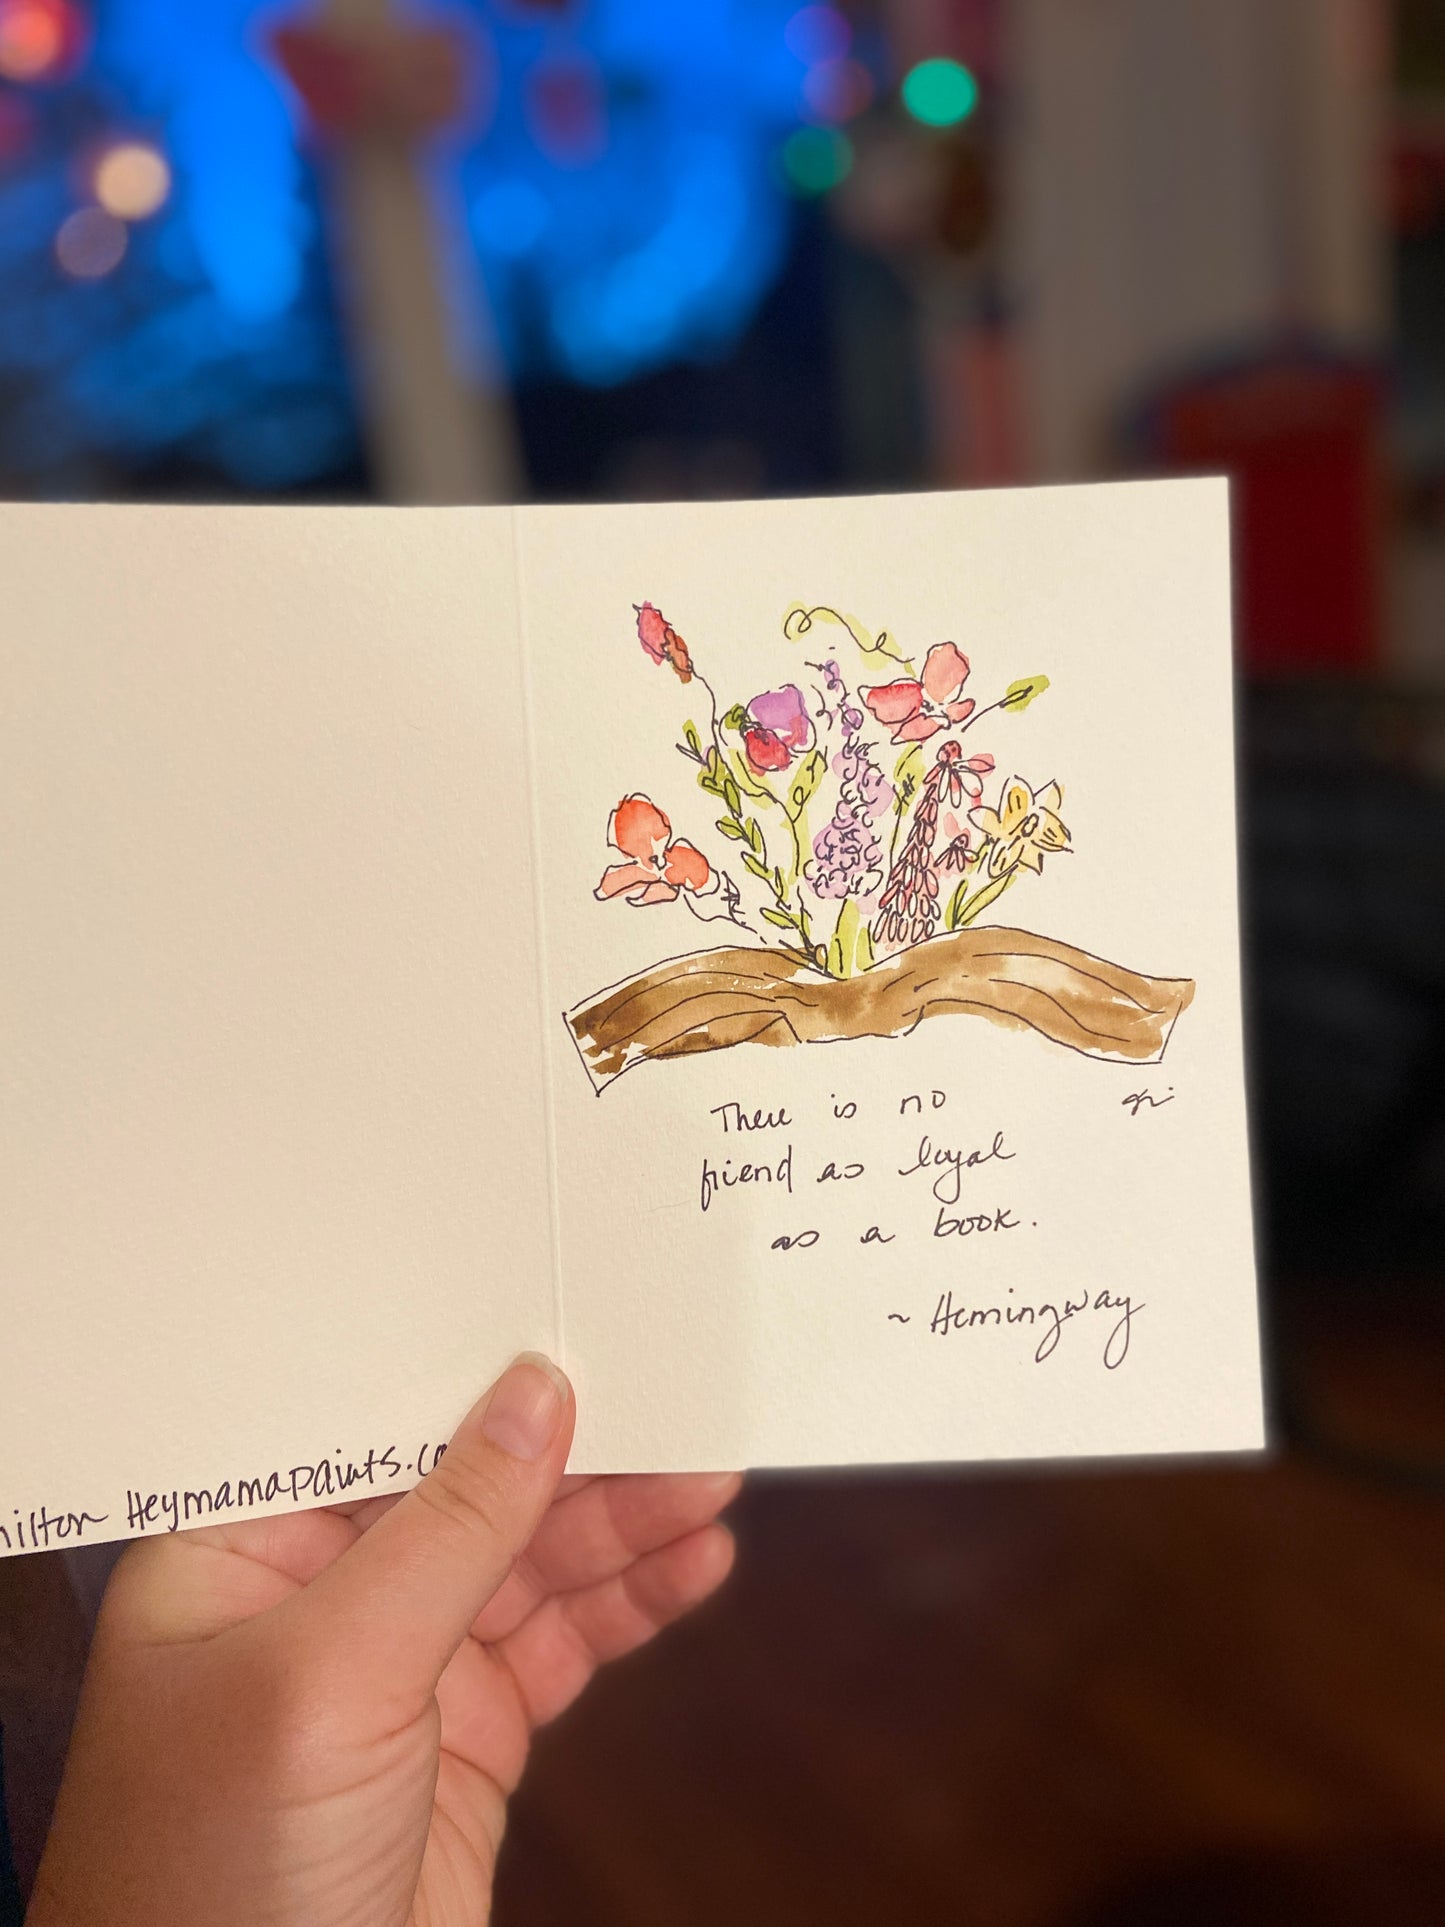 There is no
friend as loyal
as a book.
~ Hemingway
Heymamapaints.